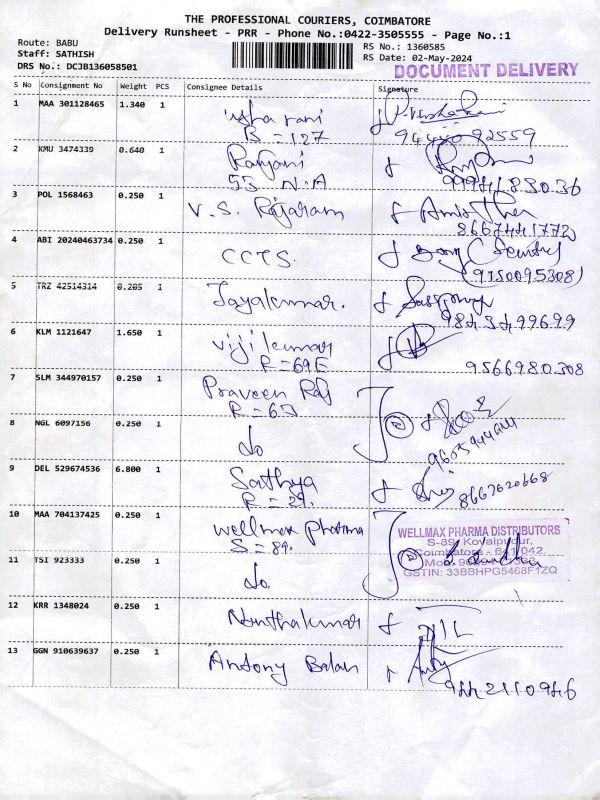 THE PROFESSIONAL COURIERS, COIMBATORE
Delivery Runsheet - PRR - Phone No.:0422-3505555 - Page No.:1
Route: BABU
Staff: SATHISH
DRS No.: DCJB136058501
RS No.: 1360585
RS Date: 02-May-2024
DOCUMENT DELIVERY
S No Consignment No Weight PCS Consignee Details Signature
1 MAA 301128465 1.340 1 usha rani
B = 127
2 KMU 3474339 0.640 1 Ranjani
55 N.A
3 POL 1568463 0.250 1 V. S. Rajaram
8667441772
4 ABI 20240463734 0.250 1 CCTS.
(9150095308)
5 TRZ 42514314 0.205 1 Jayakumar.
9843499699
6 KLM 1121647 1.650 1 vijikumar
R = 69E
9566980308
7 SLM 344970157 0.250 1 Praveen Raj
8 NGL 6097156 0.250 1 do
9 DEL 529674536 6.800 1 Sathya
R = 29.
8667020668
10 MAA 704137425 0.250 1 wellmax pharma
S = 89.
WELLMAX PHARMA DISTRIBUTORS
S-89, Kovaipudur,
Coimbatore - 641 042.
GSTIN: 33BBHPG5468F1ZQ
11 TSI 923333 0.250 1 do.
12 KRR 1348024 0.250 1 Nunthakumar
13 GGN 910639637 0.250 1 Antony Balan
9442110946